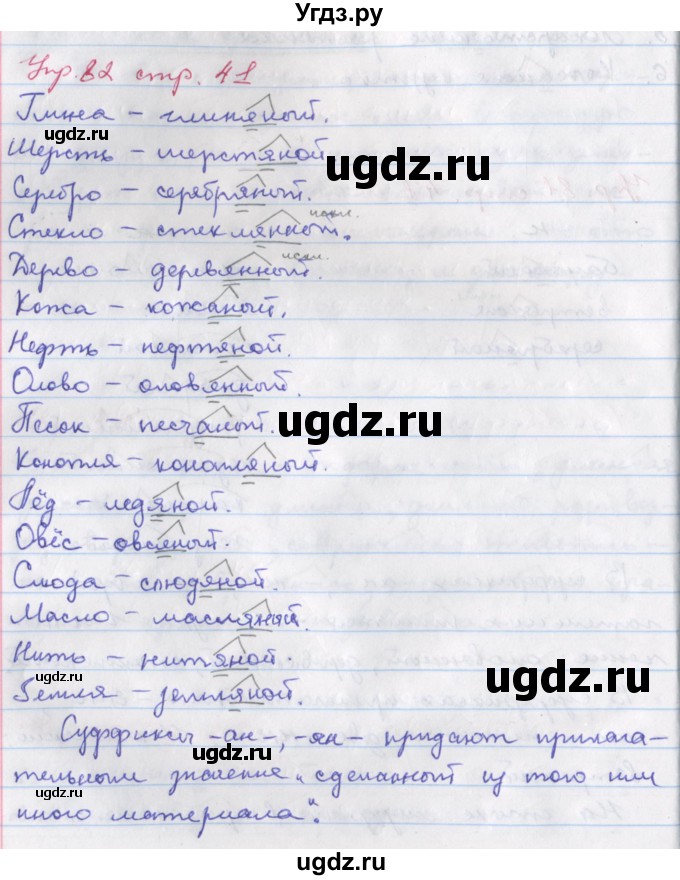 Угдз.ру
Упр. 82 стр. 41
Глина – глиняный.
ugdz.ru
Шерсть – шерстяной
ugdz.ru
Серебро – серебряный.
искл.
Стекло – стеклянный.
искл.
Дерево – деревянный.
ugdz.ru
ugdz.ru
Кожа – кожаный.
Нефть – нефтяной.
Олово – оловянный.
ugdz.ru
Песок – песчаный.
ugdz.ru
Конопля – конопляный.
Лёд – ледяной.
ugdz.ru
ugdz.ru
Овёс – овсяный.
Слюда – слюдяной.
ugdz.ru
Масло – масляный
Нить – нитяной.
ugdz.ru
ugdz.ru
Земля – земляной.
Суффиксы -ан-, -ян- придают прилага-
ugdz.ru
тельным значение „сделанный из того или
иного материала“.
ugdz.ru
ugdz.ru
ugdz.ru